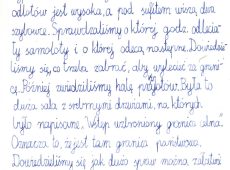 odlotów jest wysoka, a pod sufitem wiszą dwa
szybowce. Sprawdzaliśmy o której godz. odlecia-
ły samoloty i o której odlecą następne. Dowiedzie-
liśmy się, co trzeba zabrać, aby wylecieć za grani-
cę. Później zwiedziliśmy halę przylotów. Była to
duża sala z srebrnymi drzwiami, na których
było napisane, "Wstęp wzbroniony granica celna".
Oznacza to, że jest tam granica państwa.
Dowiedzieliśmy się jak dużo spraw można załatwić